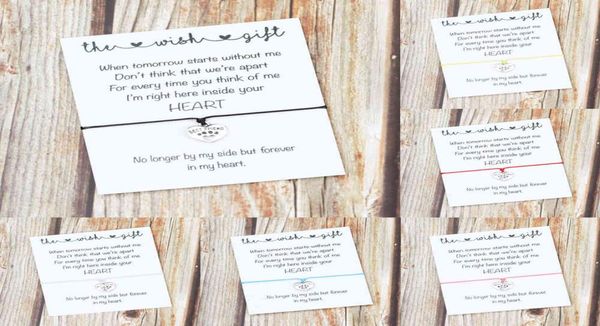 the wish gift
When tomorrow starts without me
Don't think that we're apart
For every time you think of me
I'm right here inside your
HEART
BEST FRIEND
No longer by my side but forever
in my heart.
the wish gift
When tomorrow starts without me
Don't think that we're apart
For every time you think of me
I'm right here inside your
HEART
No longer by my side but forever
in my heart.
the wish gift
When tomorrow starts without me
Don't think that we're apart
For every time you think of me
I'm right here inside your
HEART
No longer by my side but forever
in my heart.
the wish gift
When tomorrow starts without me
Don't think that we're apart
For every time you think of me
I'm right here inside your
HEART
No longer by my side but forever
in my heart.
the wish gift
When tomorrow starts without me
Don't think that we're apart
For every time you think of me
I'm right here inside your
HEART
No longer by my side but forever
in my heart.
the wish gift
When tomorrow starts without me
Don't think that we're apart
For every time you think of me
I'm right here inside your
HEART
No longer by my side but forever
in my heart.